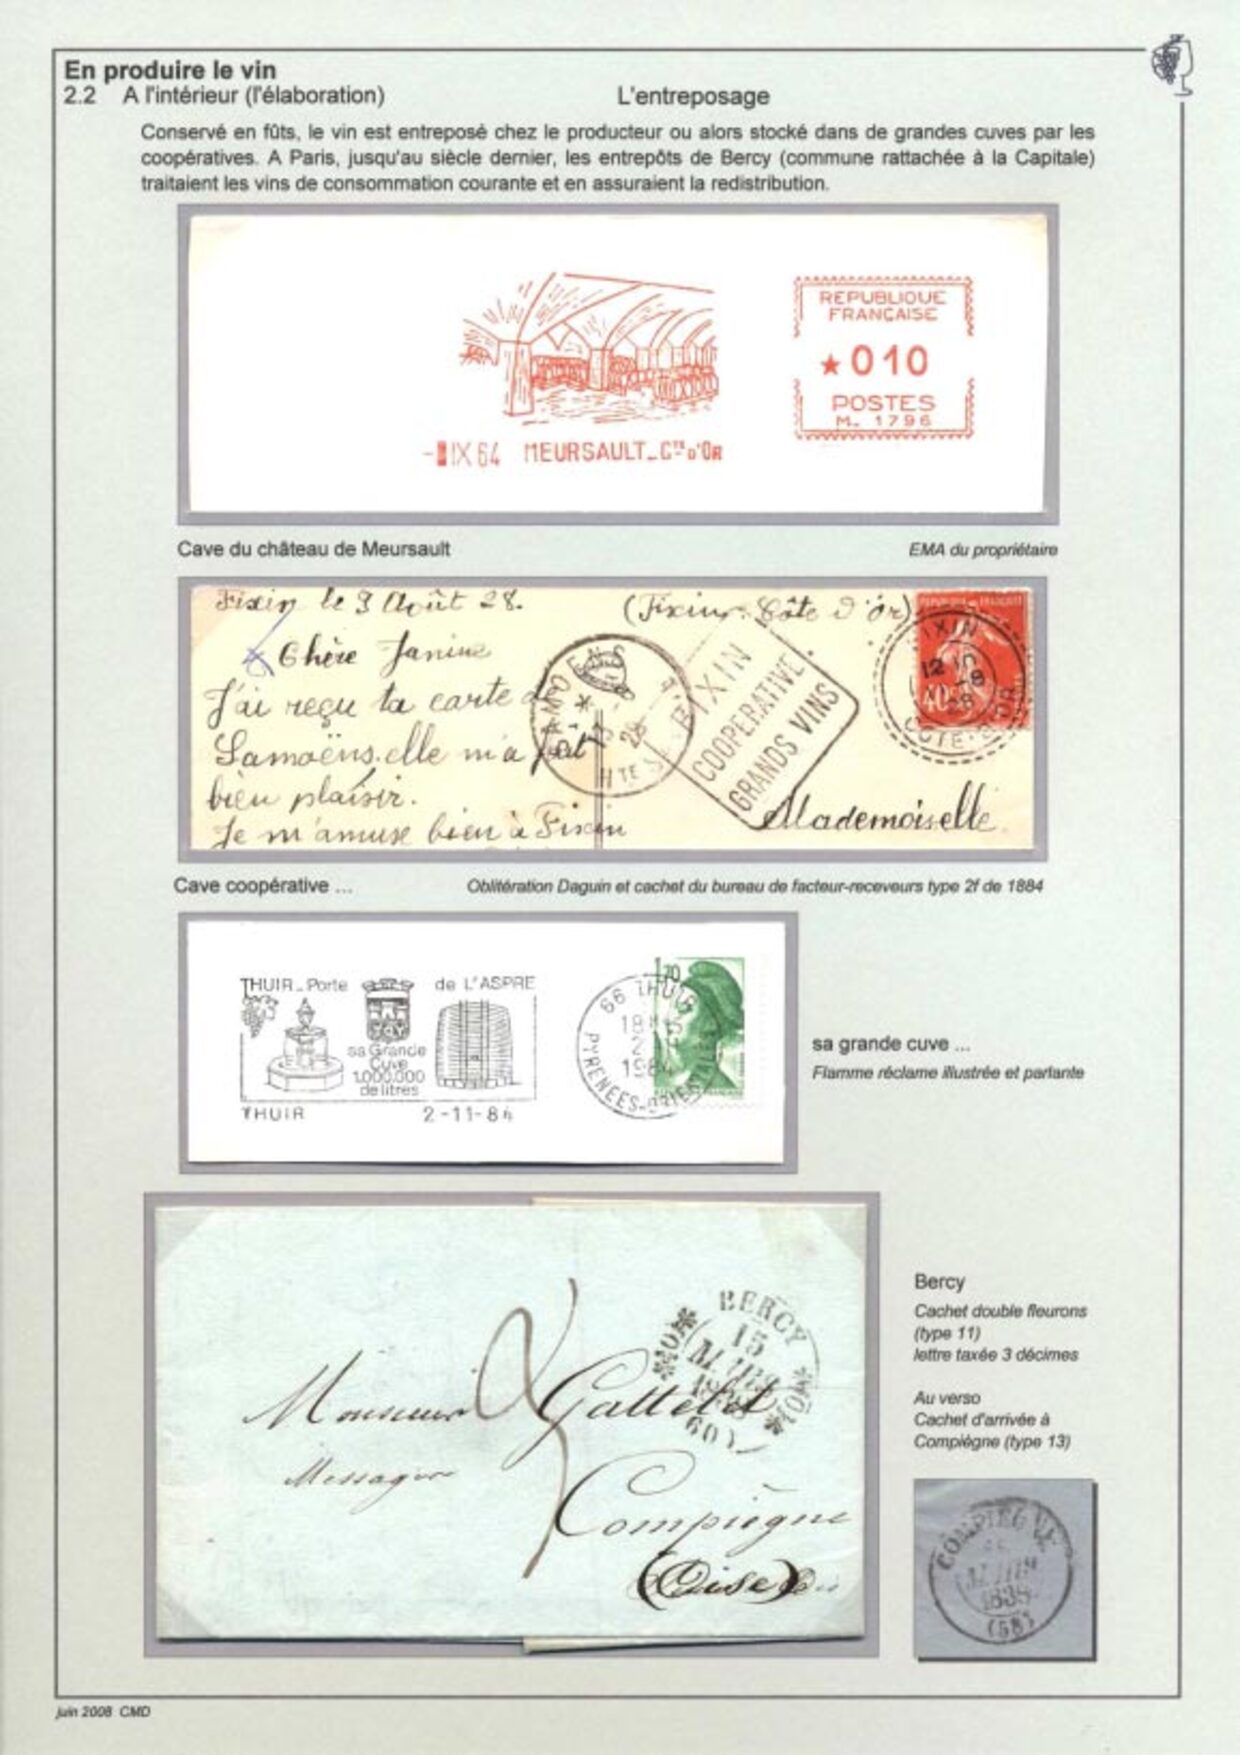 En produire le vin
2.2 A l'intérieur (l'élaboration) L'entreposage
Conservé en fûts, le vin est entreposé chez le producteur ou alors stocké dans de grandes cuves par les
coopératives. A Paris, jusqu'au siècle dernier, les entrepôts de Bercy (commune rattachée à la Capitale)
traitaient les vins de consommation courante et en assuraient la redistribution.
REPUBLIQUE
FRANÇAISE
★010
POSTES
M. 1796
IX 64 MEURSAULT_CTE D'OR
Cave du château de Meursault EMA du propriétaire
Fixin le 9 Août 28. (Fixin. Côte d'Or)
Chère Janine
J'ai reçu ta carte de
Samoëns. elle m'a fait
bien plaisir.
Je m'amuse bien à Fixin
SAMOENS
28
HTE
FIXIN
COOPERATIVE
GRANDS VINS
FIXIN
12
-8
28
COTE-D'OR
40
Mademoiselle
Cave coopérative ... Oblitération Daguin et cachet du bureau de facteur-receveurs type 2f de 1884
THUIR_Porte de L'ASPRE
sa Grande
Cuve
1.000.000
de litres
THUIR 2-11-84
66 THUIR
18H
2
1984
PYRENEES-ORIENTALES
1,70
sa grande cuve ...
Flamme réclame illustrée et parlante
BERCY
15
MARS
(60)
Monsieur Gattelet
Messager
Compiègne
(Oise)
Bercy
Cachet double fleurons
(type 11)
lettre taxée 3 décimes
Au verso
Cachet d'arrivée à
Compiègne (type 13)
COMPIEGNE
MARS
1838
(58)
juin 2008 CMD